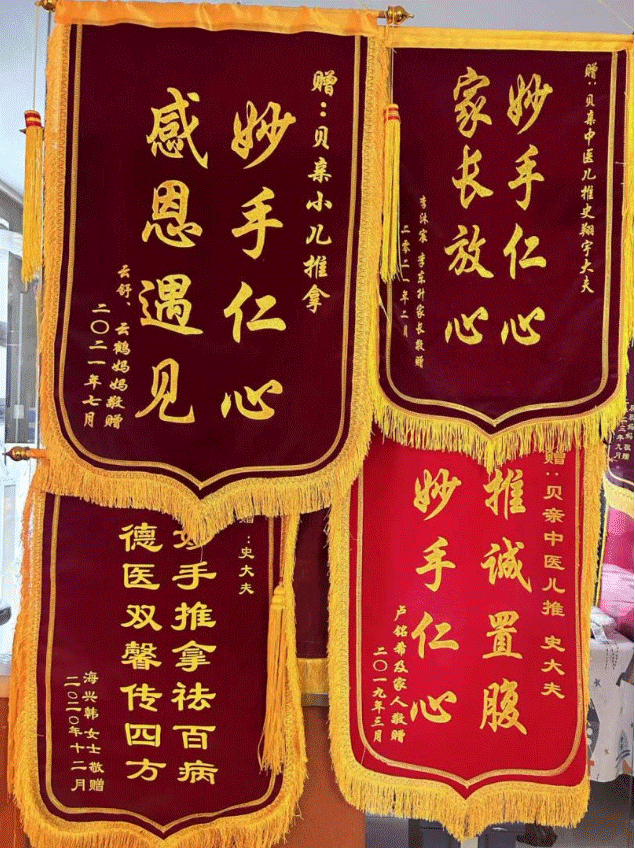 赠：贝亲小儿推拿
妙手仁心
感恩遇见
云舒、云鹤妈妈敬赠
二〇二一年七月
赠：贝亲中医儿推史翔宇大夫
妙手仁心
家长放心
李沐宸 李东升家长敬赠
二零二一年二月
赠：史大夫
妙手推拿祛百病
德医双馨传四方
海兴韩女士敬赠
二〇二〇年十二月
赠：贝亲中医儿推 史大夫
推诚置腹
妙手仁心
卢铭希及家人敬赠
二〇一九年三月